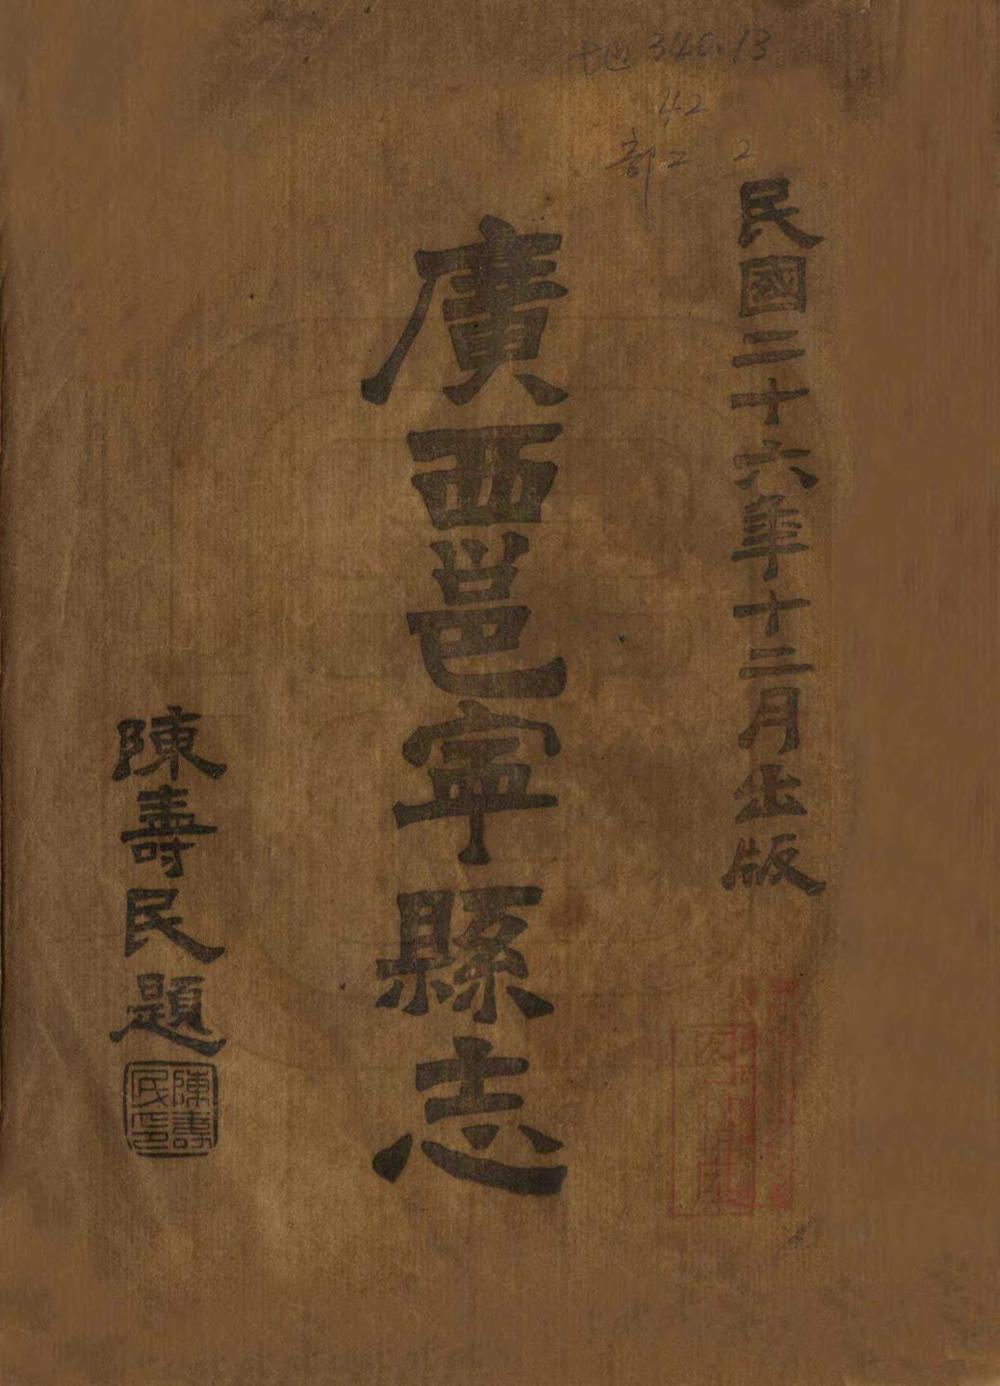 地 340.13
42
部二 2
民國二十六年十二月出版
廣西邕寧縣志
陳壽民題
陳壽民印